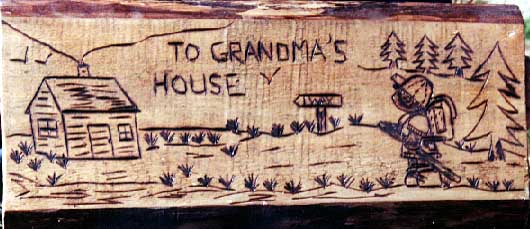 TO GRANDMA'S
HOUSE